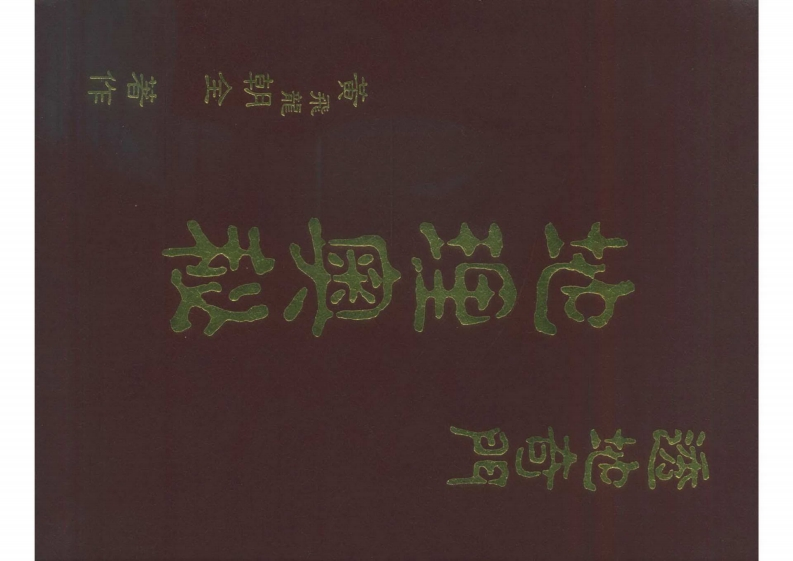 透地奇門
地理奧秘
黃飛龍朝全 著作